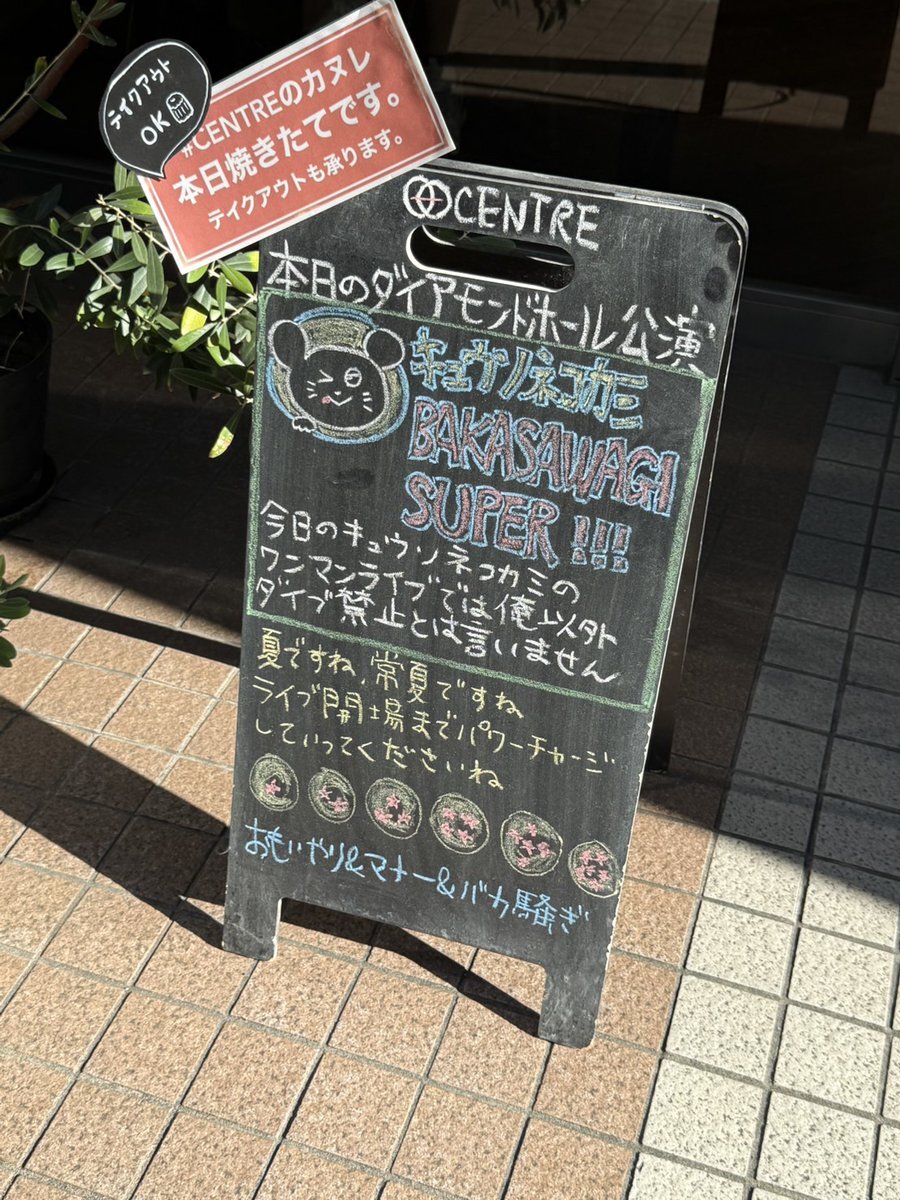 テイクアウト
OK
#CENTREのカヌレ
本日焼きたてです。
テイクアウトも承ります。
CENTRE
本日のダイアモンドホール公演
キュウソネコカミ
BAKASAWAGI
SUPER !!!
今日のキュウソネコカミの
ワンマンライブでは俺以外
ダイブ禁止とは言いません
夏ですね、常夏ですね
ライブ開場までパワーチャージ
していってくださいね
おもいやり&マナー&バカ騒ぎ